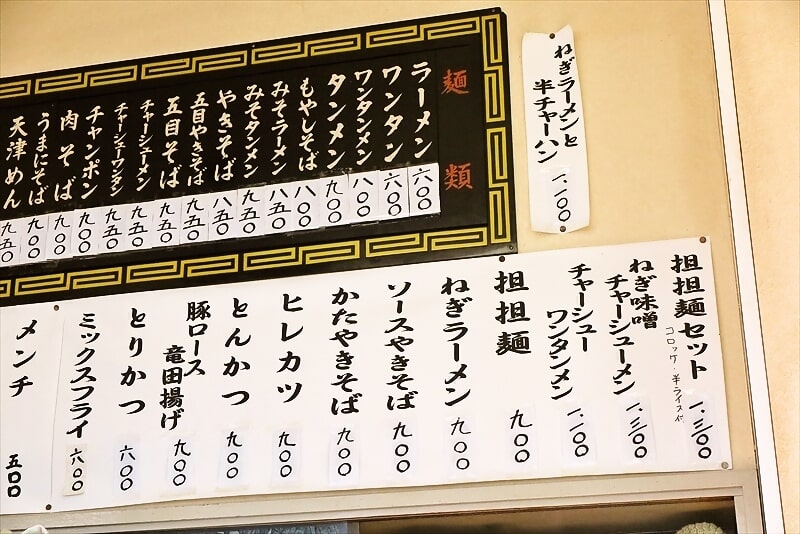 ねぎラーメンと
半チャーハン 一、一〇〇
麺類
ラーメン 六〇〇
ワンタン 六〇〇
ワンタンメン 八〇〇
タンメン 九〇〇
もやしそば 八〇〇
みそラーメン 八五〇
みそタンメン 九五〇
やきそば 八五〇
五目やきそば 九五〇
五目そば 九五〇
チャーシューメン 九五〇
チャーシューワンタン 九五〇
チャンポン 九〇〇
肉そば 九〇〇
うまにそば 九〇〇
天津めん 九五〇
担担麺セット 一、三〇〇
コロッケ・半ライス付
ねぎ味噌
チャーシューメン 一、三〇〇
チャーシュー
ワンタンメン 一、一〇〇
担担麺 九〇〇
ねぎラーメン 九〇〇
ソースやきそば 九〇〇
かたやきそば 九〇〇
ヒレカツ 九〇〇
とんかつ 九〇〇
豚ロース
竜田揚げ 九〇〇
とりかつ 六〇〇
ミックスフライ 六〇〇
メンチ 五〇〇